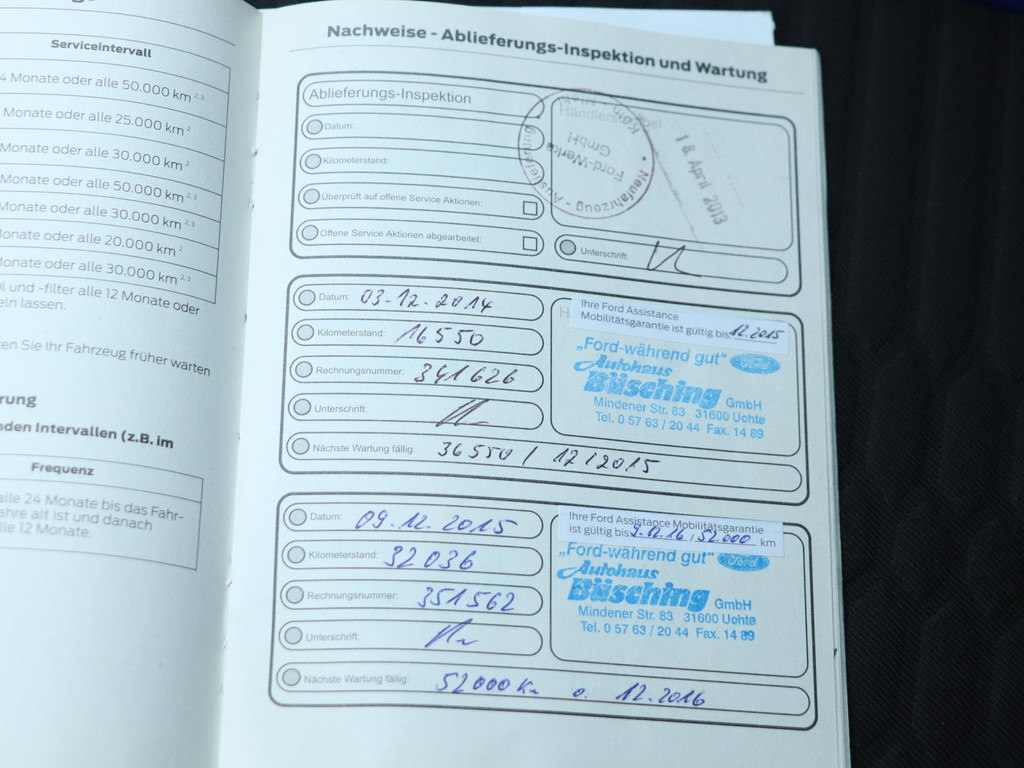 Serviceintervall
4 Monate oder alle 50.000 km 2,3
Monate oder alle 25.000 km 2
Monate oder alle 30.000 km 2
Monate oder alle 50.000 km 2,3
Monate oder alle 30.000 km 2
Monate oder alle 20.000 km 2
Monate oder alle 30.000 km 2,3
l und -filter alle 12 Monate oder
eln lassen.
ten Sie Ihr Fahrzeug früher warten
rung
nden Intervallen (z.B. im
Frequenz
alle 24 Monate bis das Fahr-
ahre alt ist und danach
lle 12 Monate.
Nachweise - Ablieferungs-Inspektion und Wartung
Ablieferungs-Inspektion
Datum:
Kilometerstand:
Überprüft auf offene Service Aktionen:
Offene Service Aktionen abgearbeitet:
Ford-Werke
GmbH
Neufahrzeug - Auslieferung
18. April 2013
Unterschrift:
Datum: 03.12.2014
Kilometerstand: 16550
Rechnungsnummer: 341626
Unterschrift:
Nächste Wartung fällig: 36550 / 12/2015
Ihre Ford Assistance
Mobilitätsgarantie ist gültig bis 12.2015
„Ford-während gut" Ford
Autohaus
Büsching GmbH
Mindener Str. 83 31600 Uchte
Tel. 0 57 63 / 20 44 Fax. 14 89
Datum: 09.12.2015
Kilometerstand: 32036
Rechnungsnummer: 351562
Unterschrift:
Nächste Wartung fällig: 52000 Km o. 12.2016
Ihre Ford Assistance Mobilitätsgarantie
ist gültig bis 9.12.16 / 52.000 km
„Ford-während gut" Ford
Autohaus
Büsching GmbH
Mindener Str. 83 31600 Uchte
Tel. 0 57 63 / 20 44 Fax. 14 89